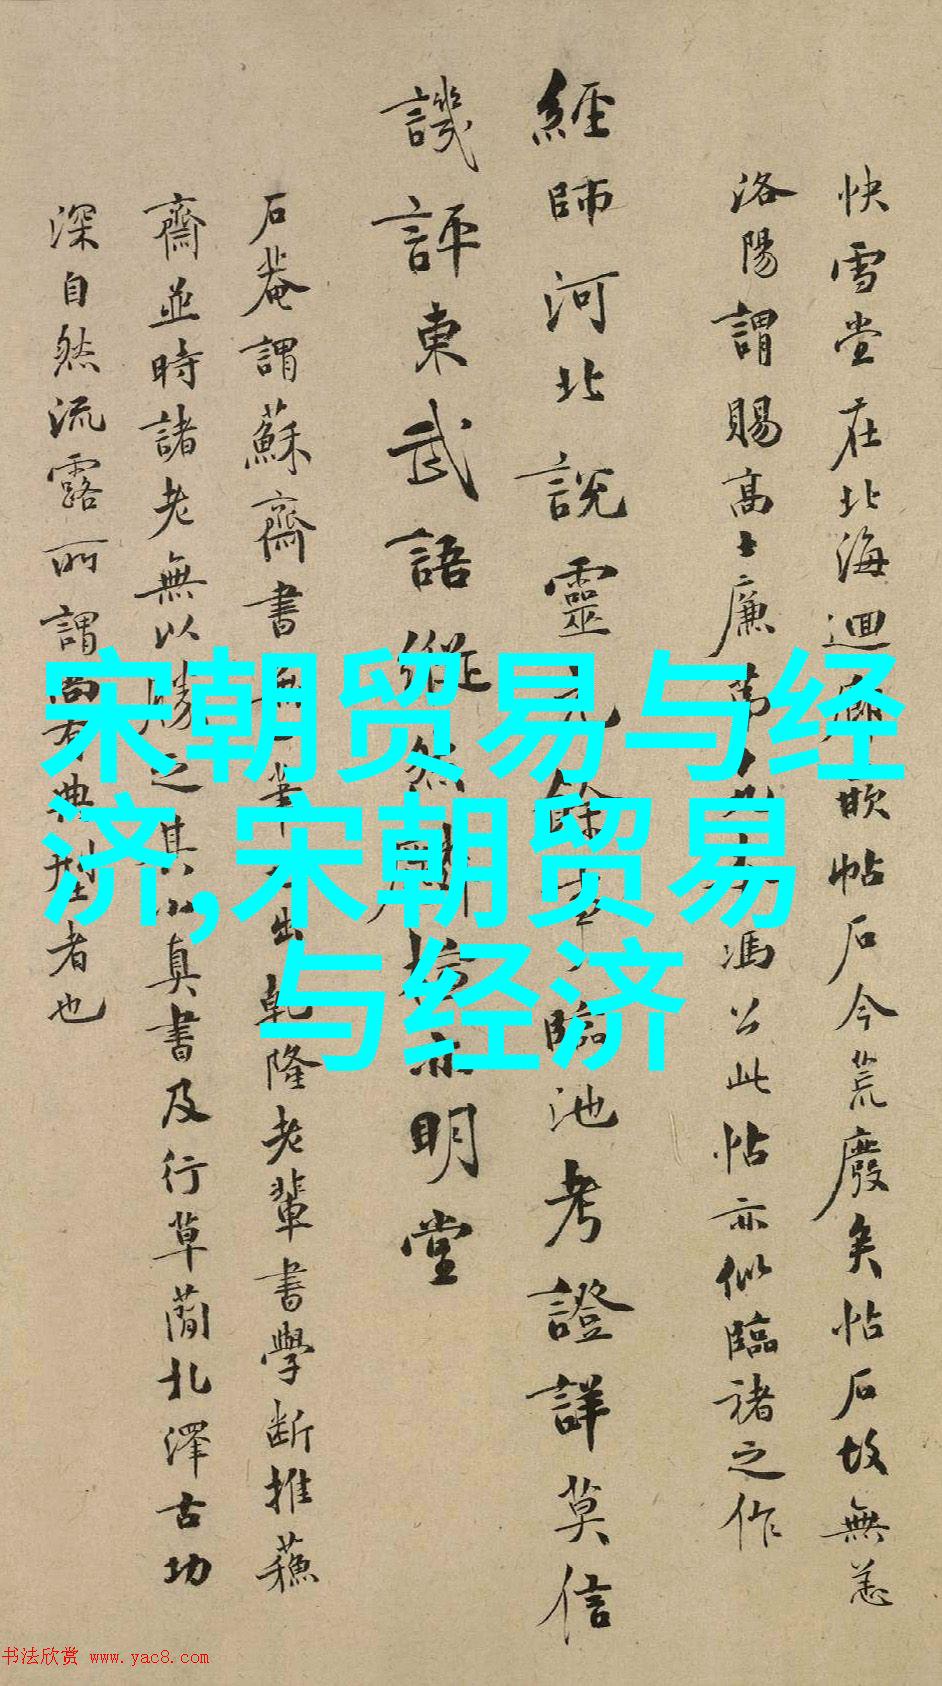 快雪堂在北海迴廊嵌帖石今荒廢矣帖石故無恙
洛陽謂賜高士廉第馮公此帖亦似臨褚之作
經師河北說靈餘事臨池考證詳莫信
譏評東武語縱然明堂
石菴謂蘇齋書出乾隆老輩書學斷推蘓
齋並時諸老無以勝之其小真書及行草蘭北澤古功
深自然流露所謂尚有典型者也
宋朝贸易与经
济,宋朝贸易
与经济
书法欣赏 www.yac8.com